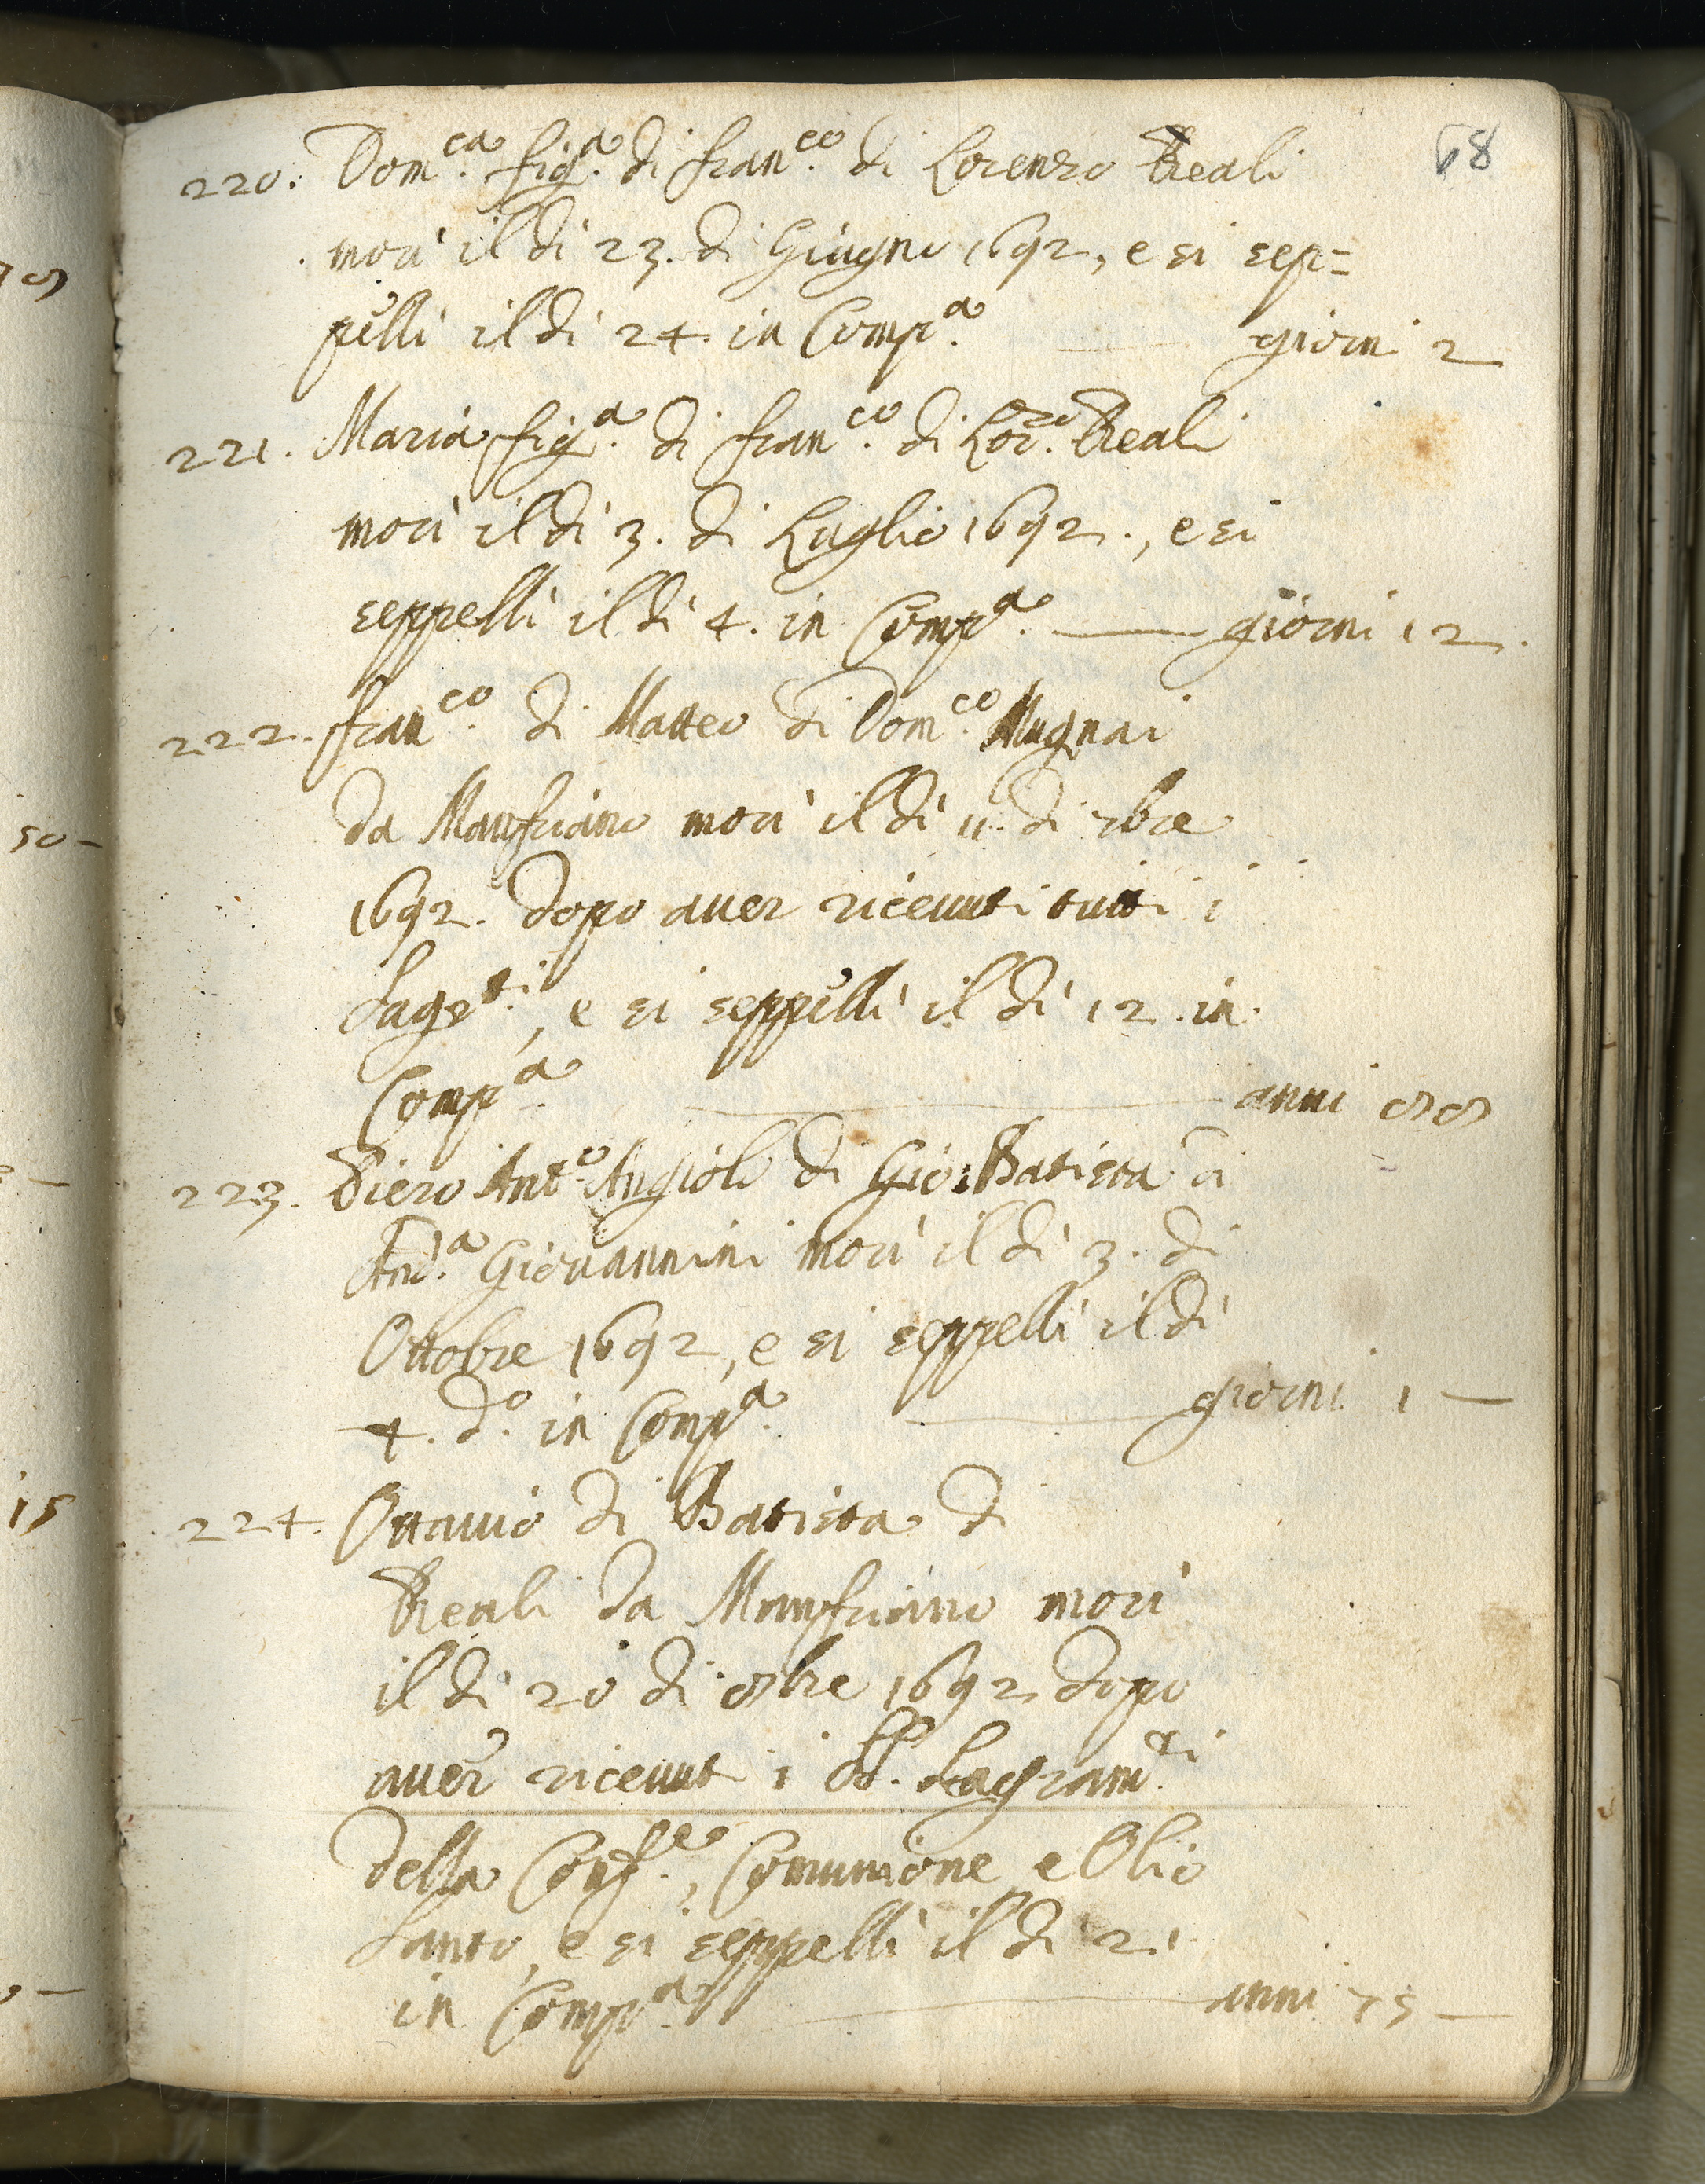 68
220. Dom.ca fig.a di Fran.co di Lorenzo Reali
morì il dì 23. di Giugno 1692, e si sep=
pellì il dì 24. in Comp.a giorni 2
221. Maria fig.a di Fran.co di Lor.zo Reali
morì il dì 3. di Luglio 1692., e si
seppellì il dì 4. in Comp.a giorni 12.
222. Fran.co di Matteo di Dom.co Mugnai
da Manfriano morì il dì 11. di 7bre
1692. dopo auer riceuuti tutti i
Sagr.ti, e si seppellì il dì 12. in
Comp.a anni 88
223. Piero Ant.o Angiolo di Gio: Batista di
And.a Giouannini morì il dì 3. di
Ottobre 1692, e si seppellì il dì
4. d.o in Comp.a giorni 1
224. Ottauio di Batista di
Reali da Manfriano morì
il dì 20 di 8bre 1692 dopo
auer riceuut i SS. Sagram.ti
della Conf.e, Comunione, e Olio
Santo, e si seppellì il dì 21
in Comp.a anni 75
50
15